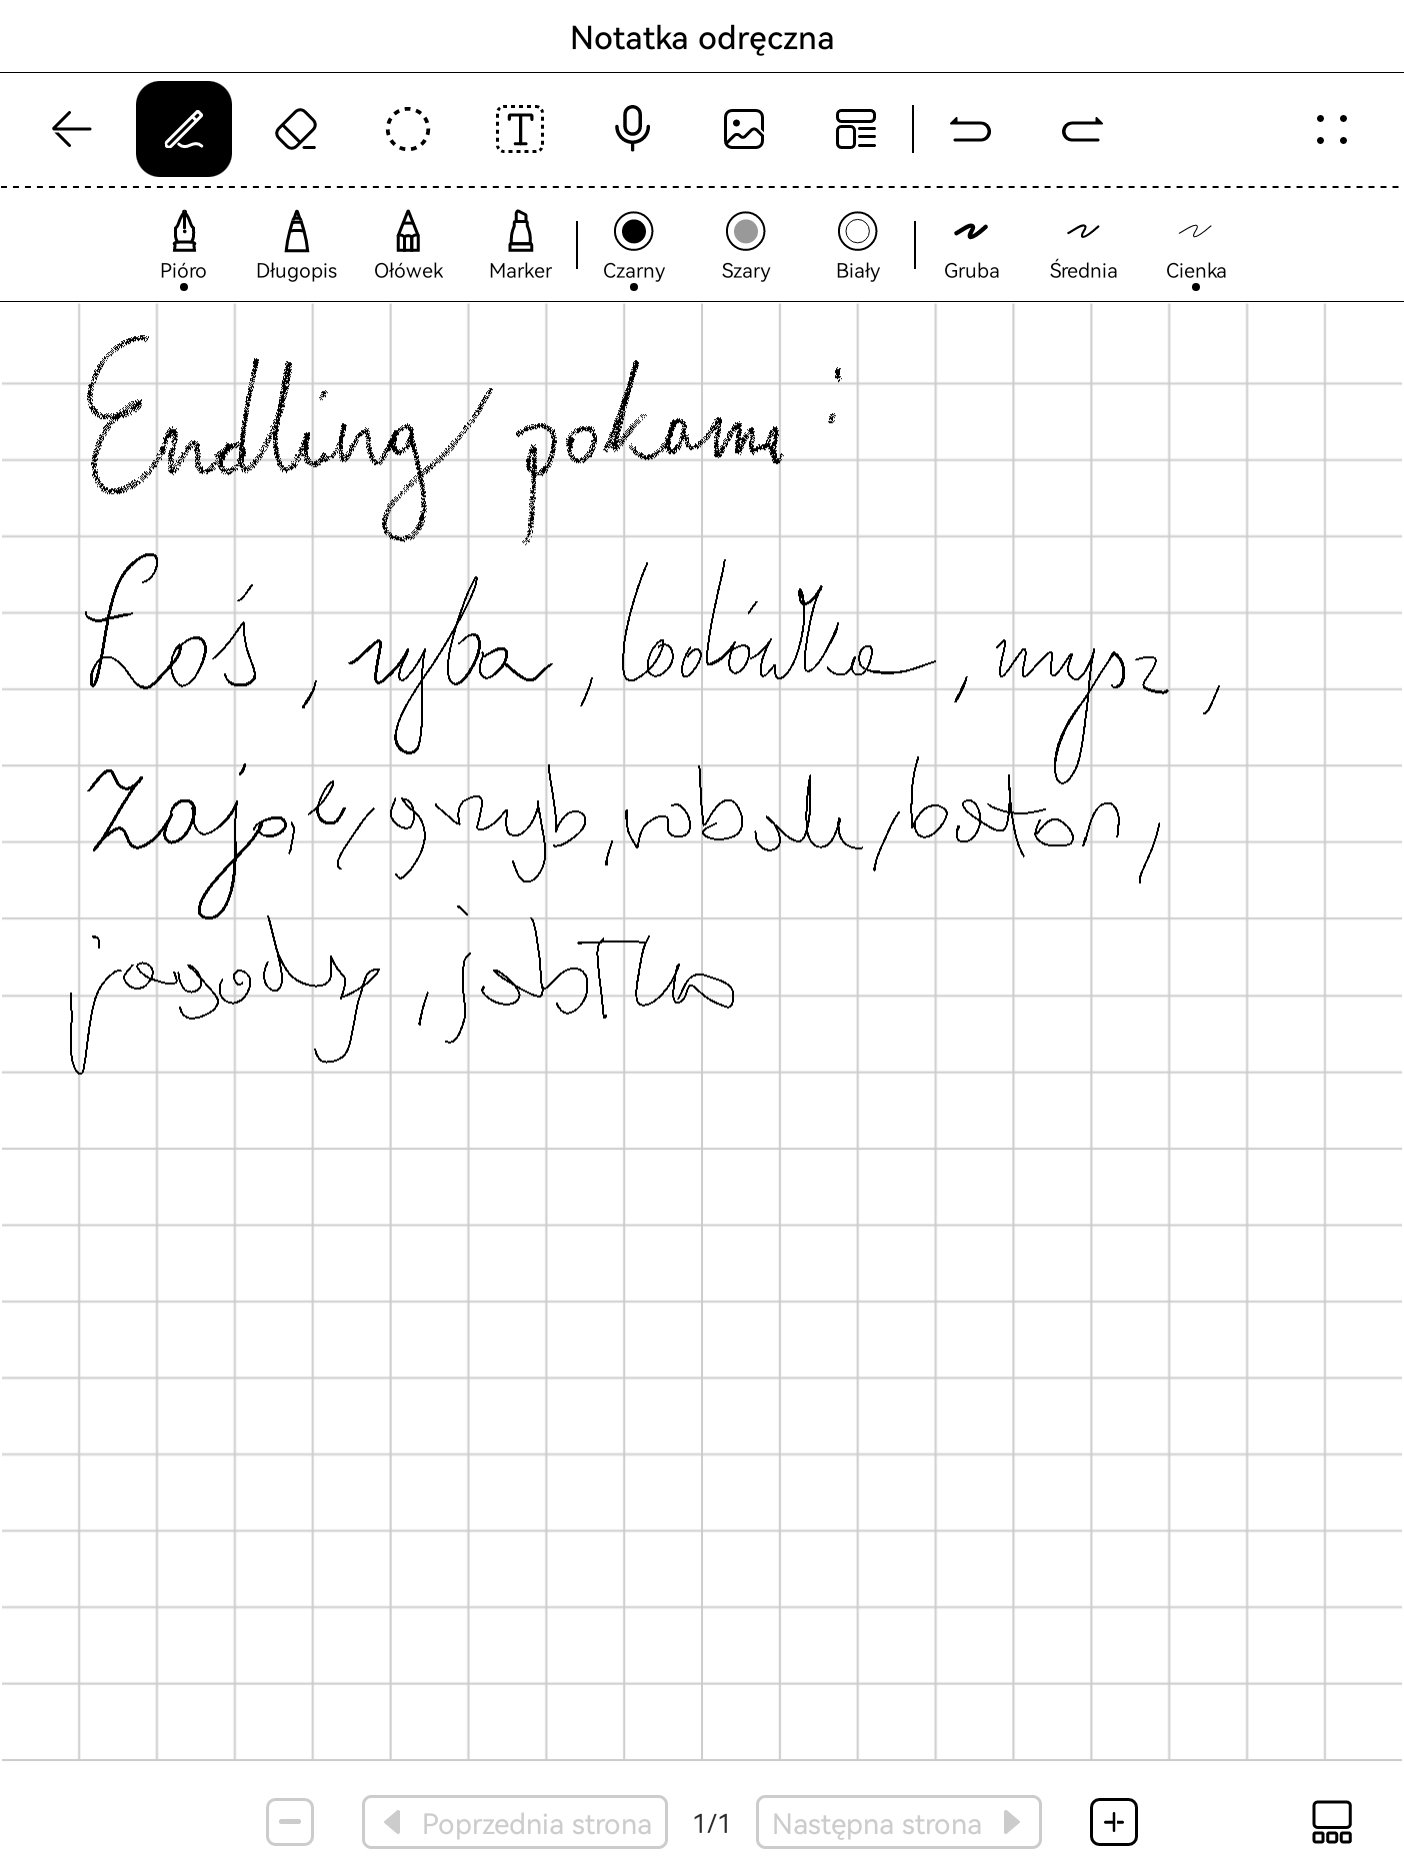 Notatka odręczna
Pióro Długopis Ołówek Marker Czarny Szary Biały Gruba Średnia Cienka
Endling pokarm:
Łoś, ryba, lodówka, mysz,
Zając, grzyb, robak, baton,
jagody, jabłko
Poprzednia strona 1/1 Następna strona